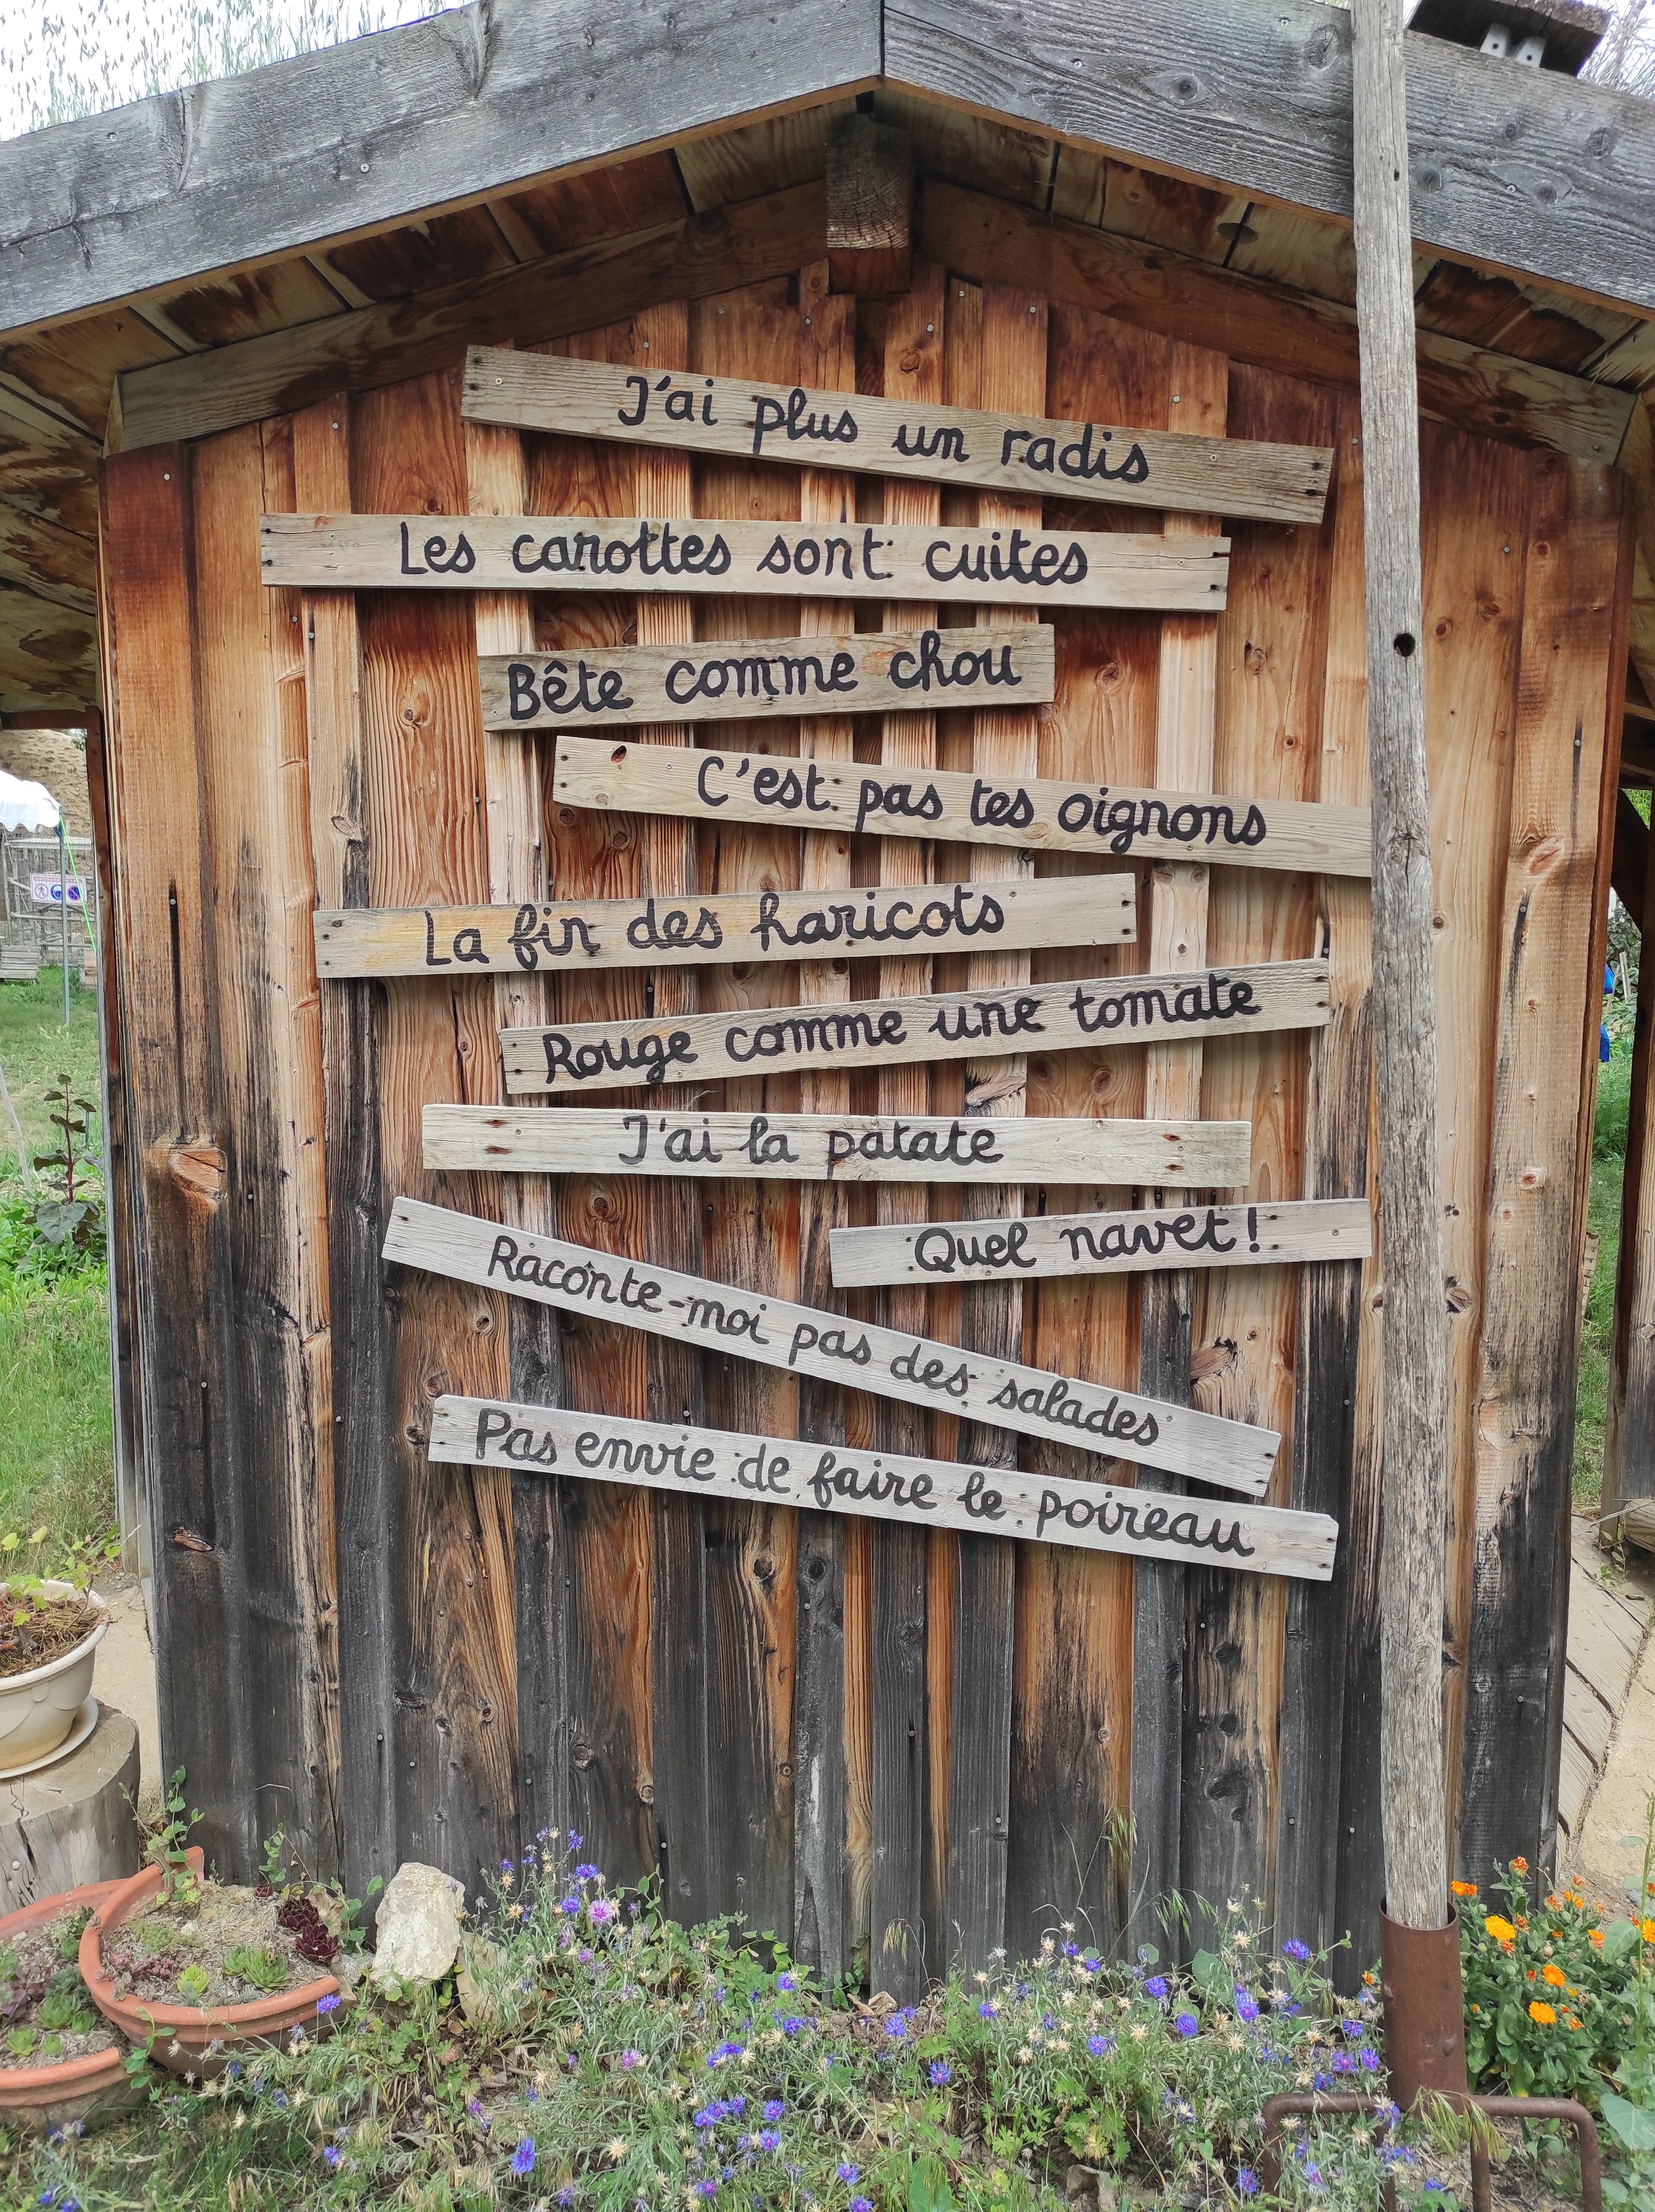 J'ai plus un radis
Les carottes sont cuites
Bête comme chou
C'est pas tes oignons
La fin des haricots
Rouge comme une tomate
J'ai la patate
Quel navet !
Raconte-moi pas des salades
Pas envie de faire le poireau